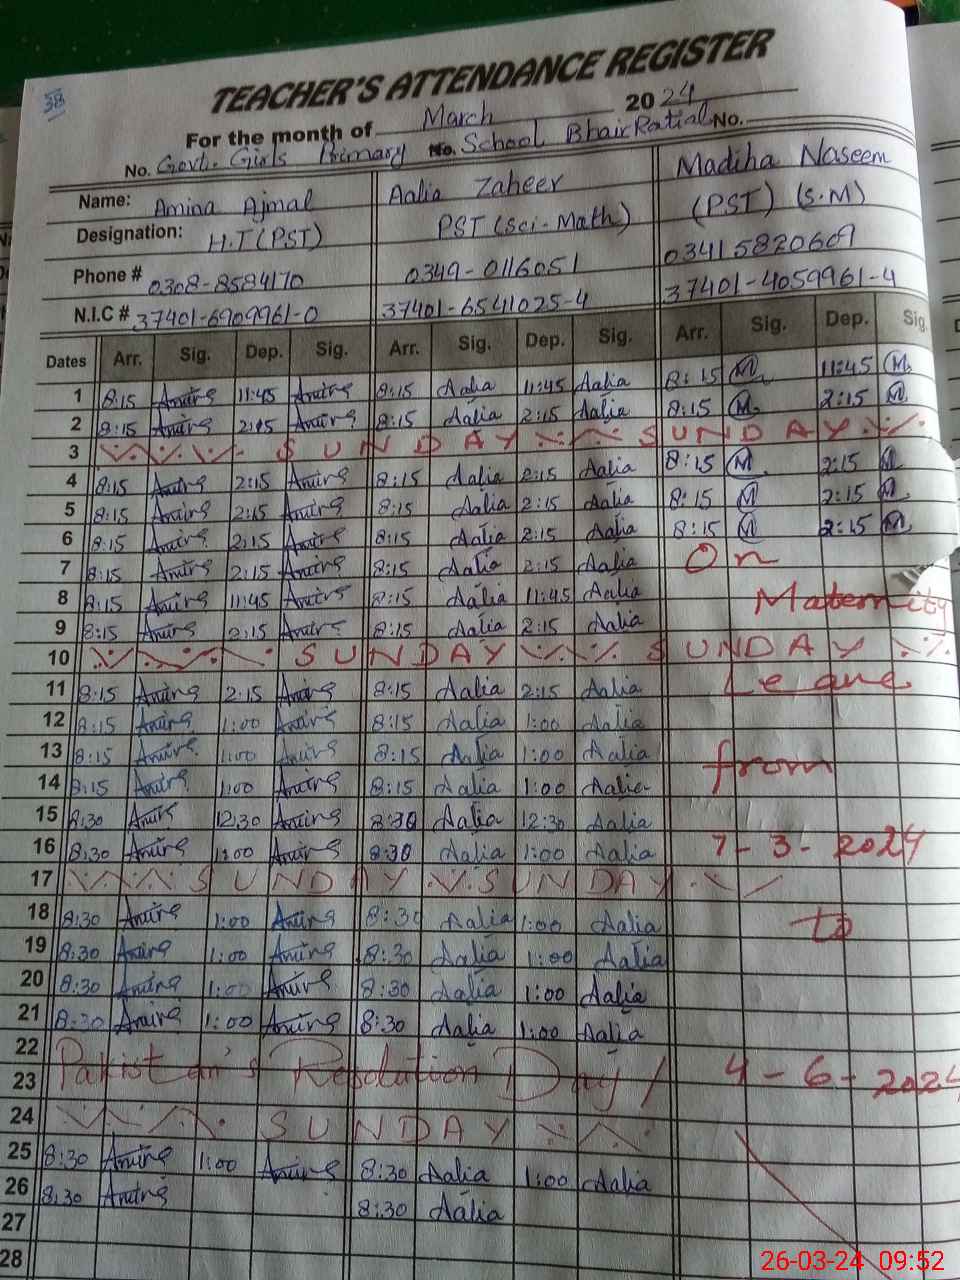 38
TEACHER'S ATTENDANCE REGISTER
For the month of March 2024
No. Govt. Girls Primary No. School Bhair Ratial No.
Name: Amina Ajmal Aalia Zaheer Madiha Naseem
Designation: H.T (PST) PST (Sci-Math) (PST) (S.M)
Phone # 0308-8584170 0349-0116051 03415820609
N.I.C # 37401-6909961-0 37401-6541025-4 37401-4059961-4
Dates Arr. Sig. Dep. Sig. Arr. Sig. Dep. Sig. Arr. Sig. Dep. Sig.
1 8:15 Amina 11:45 Amina 8:15 Aalia 11:45 Aalia 8:15 M 11:45 M
2 8:15 Amina 2:15 Amina 8:15 Aalia 2:15 Aalia 8:15 M 2:15 M
3 SUNDAY SUNDAY
4 8:15 Amina 2:15 Amina 8:15 Aalia 2:15 Aalia 8:15 M 2:15 M
5 8:15 Amina 2:15 Amina 8:15 Aalia 2:15 Aalia 8:15 M 2:15 M
6 8:15 Amina 2:15 Amina 8:15 Aalia 2:15 Aalia 8:15 M 2:15 M
7 8:15 Amina 2:15 Amina 8:15 Aalia 2:15 Aalia On
8 8:15 Amina 11:45 Amina 8:15 Aalia 11:45 Aalia Maternity
9 8:15 Amina 2:15 Amina 8:15 Aalia 2:15 Aalia
10 SUNDAY SUNDAY
11 8:15 Amina 2:15 Amina 8:15 Aalia 2:15 Aalia Leave
12 8:15 Amina 1:00 Amina 8:15 Aalia 1:00 Aalia
13 8:15 Amina 1:00 Amina 8:15 Aalia 1:00 Aalia from
14 8:15 Amina 1:00 Amina 8:15 Aalia 1:00 Aalia
15 8:30 Amina 12:30 Amina 8:30 Aalia 12:30 Aalia
16 8:30 Amina 1:00 Amina 8:30 Aalia 1:00 Aalia 7-3-2024
17 SUNDAY SUNDAY
18 8:30 Amina 1:00 Amina 8:30 Aalia 1:00 Aalia to
19 8:30 Amina 1:00 Amina 8:30 Aalia 1:00 Aalia
20 8:30 Amina 1:00 Amina 8:30 Aalia 1:00 Aalia
21 8:30 Amina 1:00 Amina 8:30 Aalia 1:00 Aalia
22
23 Pakistan's Resolution Day! 4-6-2024
24 SUNDAY
25 8:30 Amina 1:00 Amina 8:30 Aalia 1:00 Aalia
26 8:30 Amina 8:30 Aalia
27
28
26-03-24 09:52